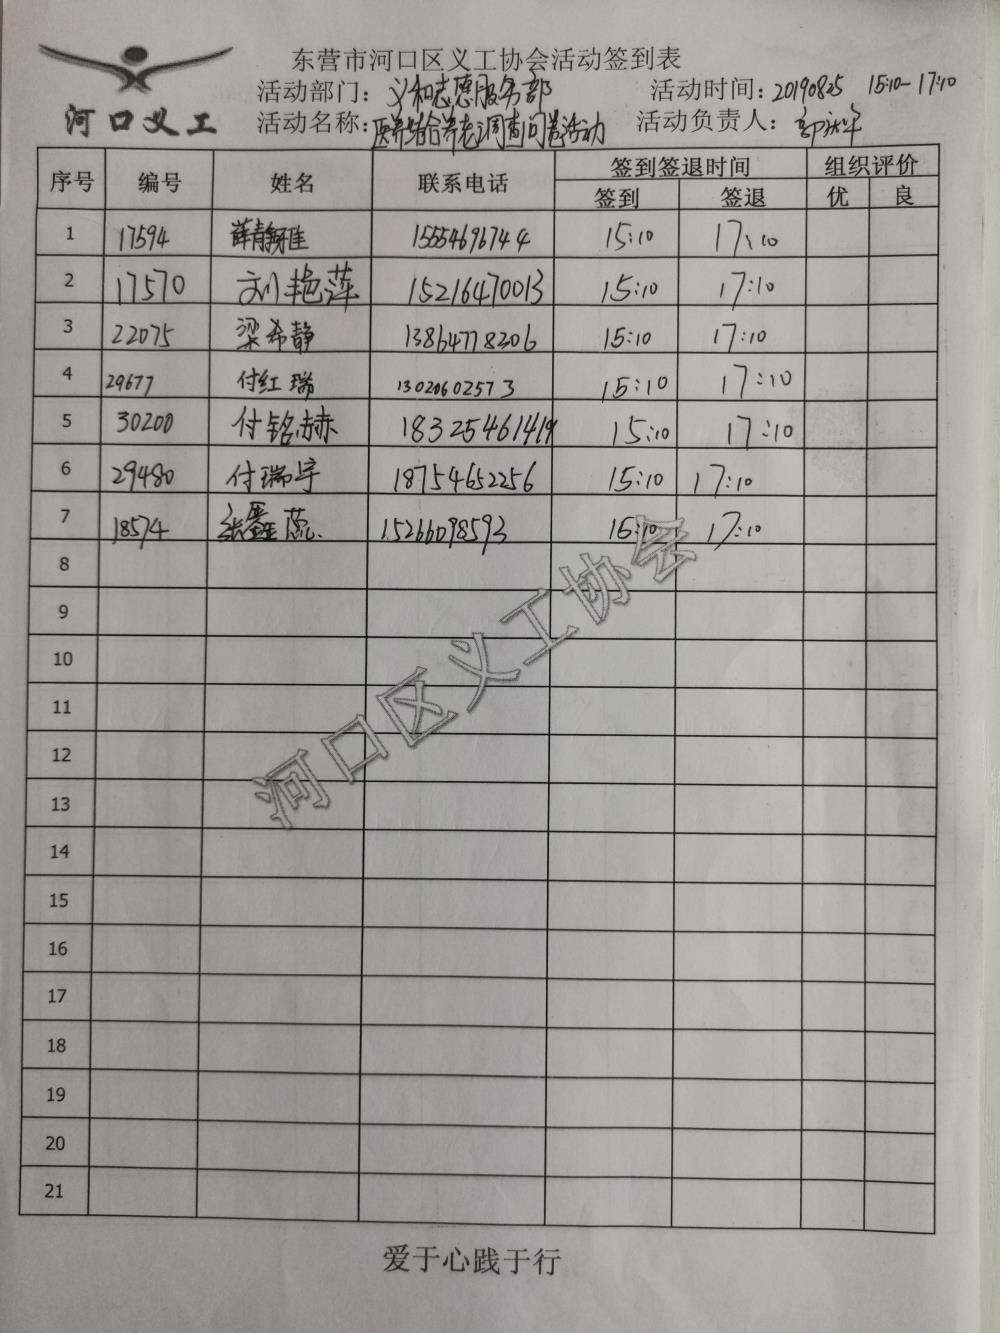 东营市河口区义工协会活动签到表
活动部门：义和志愿服务部 活动时间：20190825 15:10-17:10
河口义工
活动名称：医养结合养老调查问卷活动 活动负责人：
序号 编号 姓名 联系电话 签到签退时间 组织评价
签到 签退 优 良
1 17594 薛静雅 15554696744 15:10 17:10
2 17570 刘艳萍 15216470013 15:10 17:10
3 22075 梁希静 13864778206 15:10 17:10
4 29677 付红瑞 13020602573 15:10 17:10
5 30200 付铭赫 18325461419 15:10 17:10
6 29480 付瑞宇 18754652256 15:10 17:10
7 18574 张鑫蕊 15266098593 15:10 17:10
8
9
10
11
12
13
14
15
16
17
18
19
20
21
河口区义工协会
爱于心践于行